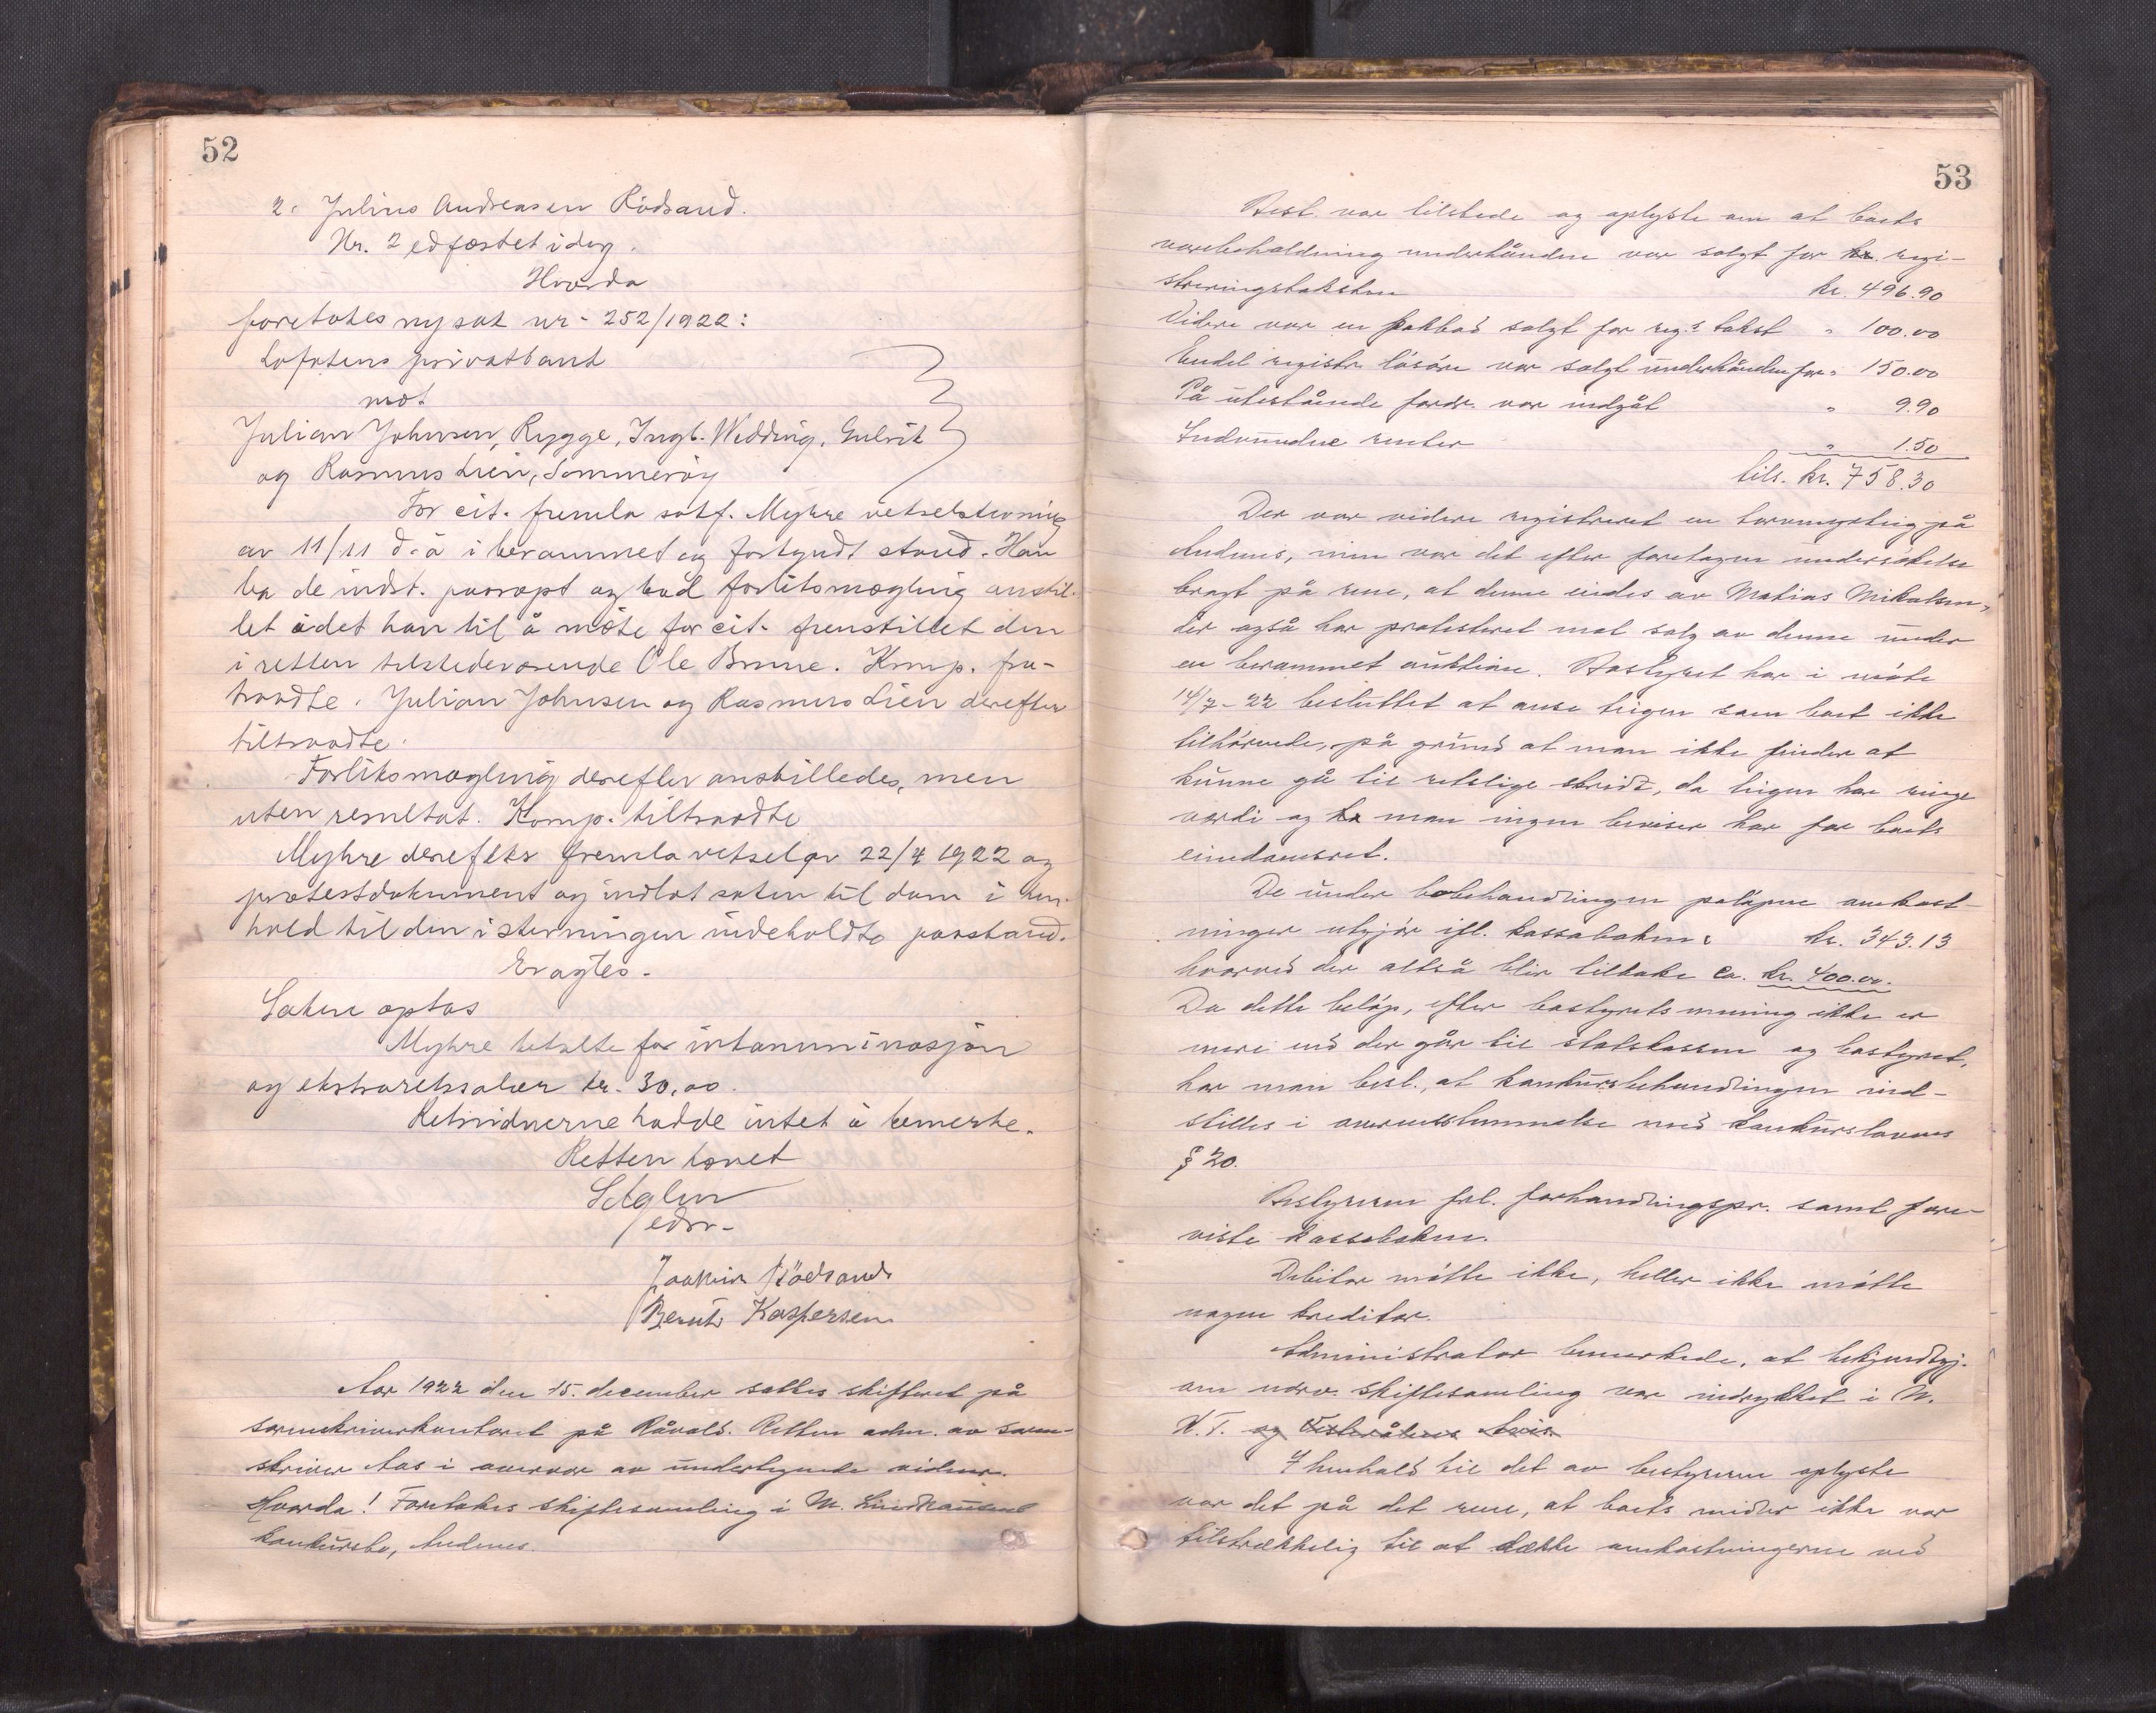 52
2. Julius Andreasen Rödsand.
Nr. 2 edfæstet idag.
Hvorda
foretokes ny sak nr. 252/1922:
Lofotens privatbank
mot
Julian Johnsen, Rygge, Ingb. Wedding, Gulvik
og Rasmus Lien, Sommeröy
For cit. fremla sakf. Myhre vekselstevning
av 11/11 d.å i berammet og forkyndt stand. Han
ba de indst. paaropt og bad forliksmægling anstil-
let idet han til å møte for cit. fremstillet den
i retten tilstedeværende Ole Brune. Komp. fra-
traadte. Julian Johnsen og Rasmus Lien derefter
tiltraadte.
Forliksmægling derefter anstilledes, men
uten resultat. Komp. tiltraadte
Myhre derefter fremla veksel av 22/4 1922 og
protestdokument og indlot saken til dom i hen-
hold til den i stevningen indeholdte paastand.
Eragtes.
Saken optas
Myhre betalte for intamminasjon
og ekstraretssalær kr. 30,00.
Retsvidnerne hadde intet å bemerke.
Retten hævet
edsv-
Joakim Rödsand
Bernt Kaspersen
Aar 1922 den 15. december sattes skifteret på
sorenskriverkontoret på Råvold. Retten adm. av soren-
skriver Aas i overvær av undertegnede vidner.
Hvorda! Foretokes skiftesamling i M. Lindkausens
konkursbo, Andenes.
53
Best. var tilstede og oplyste om at boets
varebeholdning underhånden var solgt for kr. regi-
streringstaksten kr. 496.90
Videre var en fiskbås solgt for reg.s takst " 100.00
Endel registr. løsøre var solgt underhånden for " 150.00
På utestående fordr. var indgåt " 9.90
Indvundne renter " 1.50
tils. kr. 758.30
Der var videre registreret en torvmyrteig på
Andenes, men var det efter foretagen undersøkelse
bragt på rene, at denne eides av Matias Mikalsen,
der også har protesteret mot salg av denne under
en berammet auktion. Bostyret har i møte
14/7-22 besluttet at anse teigen som boet ikke
tilhørende, på grund at man ikke finder at
kunne gå til retslige skridt, da teigen har ringe
værdi og ha man ingen beviser har for boets
eiendomsret.
De under bobehandlingen påløpne omkost-
ninger utgjør ifl. kassaboken: kr. 343.13
hvorved der altså blir tilbake ca. kr. 400.00.
Da dette beløp, efter bostyrets mening ikke er
mere end der går til statskassen og bostyret,
har man besl., at konkursbehandlingen ind-
stilles i overensstemmelse med konkurslovens
§ 20.
Bestyreren frl. forhandlingspr. samt fore-
viste kassaboken.
Debitor møtte ikke, heller ikke møtte
nogen kreditor.
Administrator bemerkede, at bekjendtgj.
om nærv. skiftesamling var indrykket i N.
K.T. og Vesterålens Avis
I henhold til det av bestyreren oplyste
var det på det rene, at boets midler ikke var
tilstrækkelig til at dække omkostningerne ved